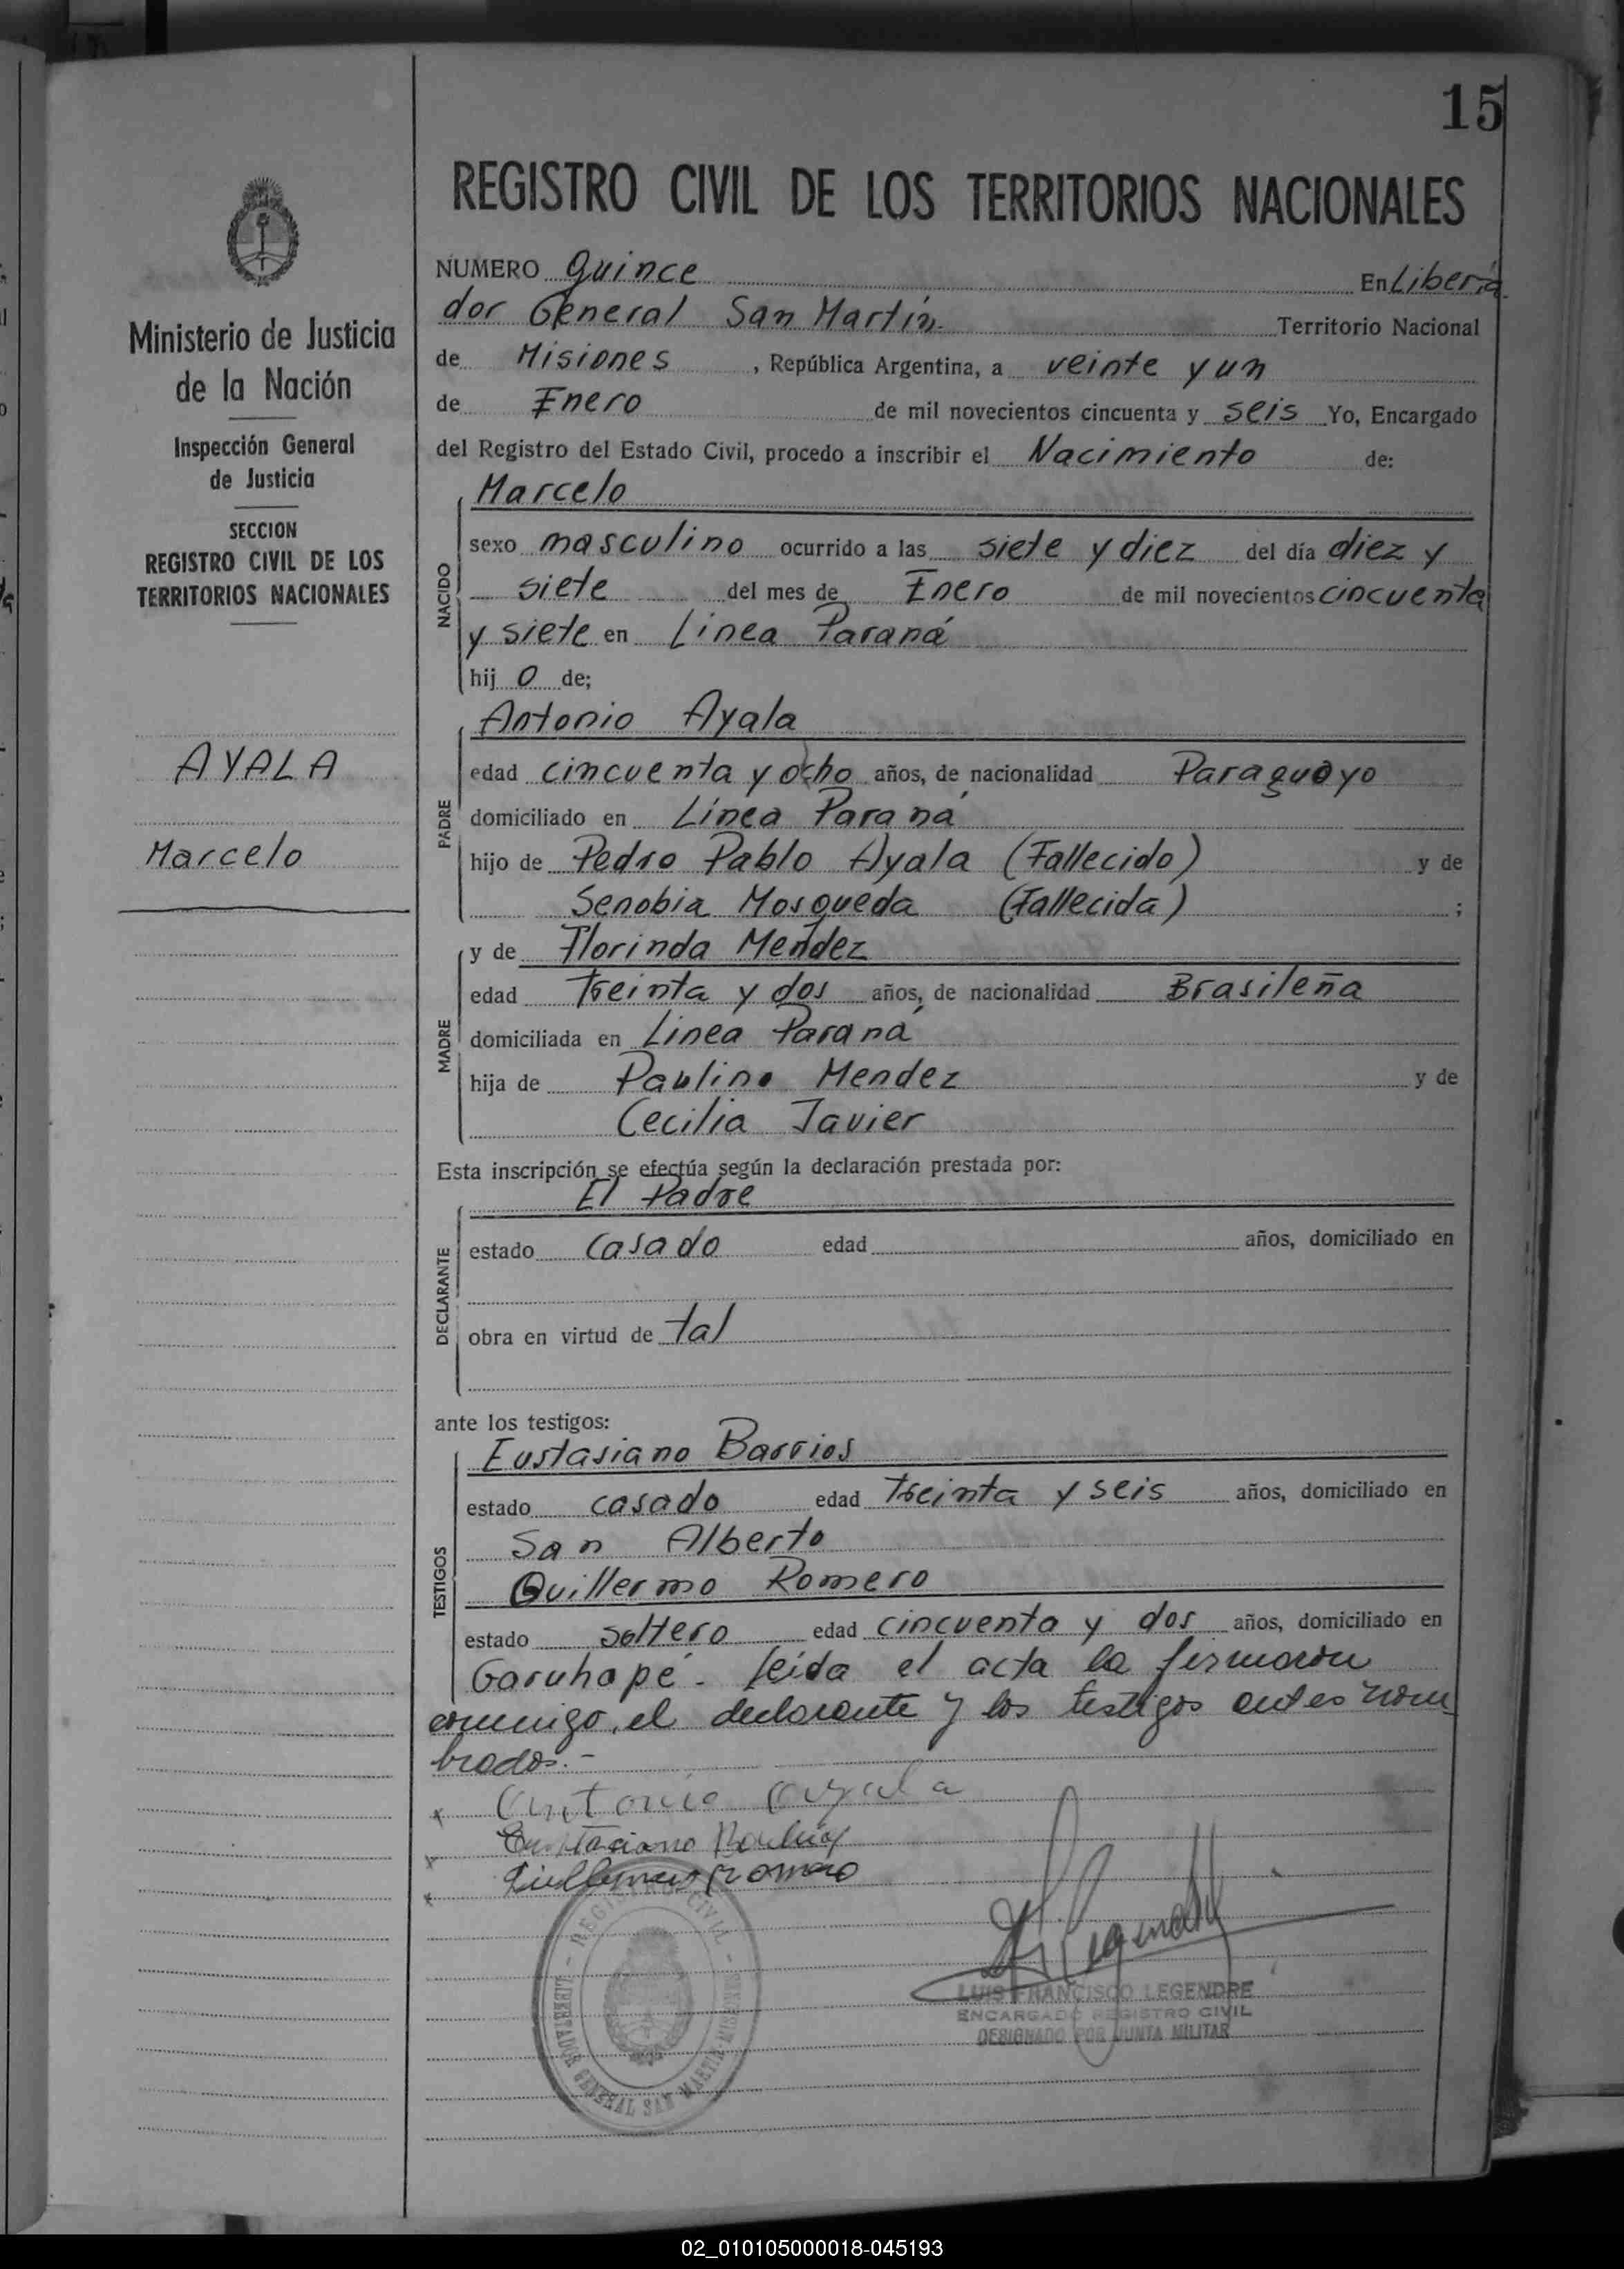 15
REGISTRO CIVIL DE LOS TERRITORIOS NACIONALES
Ministerio de Justicia
de la Nación
Inspección General
de Justicia
SECCION
REGISTRO CIVIL DE LOS
TERRITORIOS NACIONALES
AYALA
Marcelo
NUMERO quince En Liberta
dor General San Martín Territorio Nacional
de Misiones, República Argentina, a veinte y un
de Enero de mil novecientos cincuenta y seis Yo, Encargado
del Registro del Estado Civil, procedo a inscribir el Nacimiento de:
NACIDO
Marcelo
sexo masculino ocurrido a las siete y diez del día diez y
siete del mes de Enero de mil novecientos cincuenta
y siete en Linea Paraná
hij o de;
PADRE
Antonio Ayala
edad cincuenta y ocho años, de nacionalidad Paraguayo
domiciliado en Línea Paraná
hijo de Pedro Pablo Ayala (Fallecido) y de
Senobia Mosqueda (Fallecida) ;
MADRE
y de Florinda Mendez
edad treinta y dos años, de nacionalidad Brasileña
domiciliada en Linea Paraná
hija de Paulino Mendez y de
Cecilia Javier
Esta inscripción se efectúa según la declaración prestada por:
DECLARANTE
El Padre
estado casado edad años, domiciliado en
obra en virtud de tal
ante los testigos:
TESTIGOS
Eustasiano Barrios
estado casado edad treinta y seis años, domiciliado en
San Alberto
Guillermo Romero
estado soltero edad cincuenta y dos años, domiciliado en
Garuhapé. leída el acta la firmaron
conmigo, el declarante y los testigos antes nom
brados.-
x Antonio Ayala
x Eustaciano
x Guillermo Romero
REGISTRO CIVIL - LIBERTADOR GENERAL SAN MARTIN - MISIONES
LUIS FRANCISCO LEGENDRE
ENCARGADO REGISTRO CIVIL
DESIGNADO POR JUNTA MILITAR
02_010105000018-045193